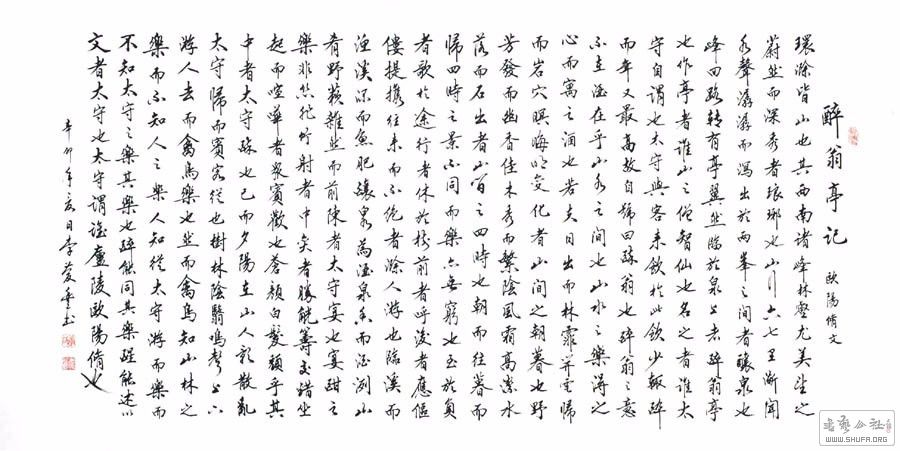 醉翁亭記 歐陽脩文
環滁皆山也其西南諸峰林壑尤美望之
蔚然而深秀者琅琊也山行六七里漸聞
水聲潺潺而瀉出於兩峯之間者釀泉也
峰回路轉有亭翼然臨於泉上者醉翁亭
也作亭者誰山之僧智仙也名之者誰太
守自謂也太守與客来飲於此飲少輒醉
而年又最高故自號曰醉翁也醉翁之意
不在酒在乎山水之間也山水之樂得之
心而寓之酒也若夫日出而林霏開雲歸
而岩穴暝晦明變化者山間之朝暮也野
芳發而幽香佳木秀而繁陰風霜高潔水
落而石出者山間之四時也朝而往暮而
歸四時之景不同而樂亦無窮也至於負
者歌於途行者休於樹前者呼後者應傴
僂提攜往来而不絶者滁人游也臨溪而
漁溪深而魚肥釀泉為酒泉香而酒洌山
肴野蔌雜然而前陳者太守宴也宴酣之
樂非絲非竹射者中弈者勝觥籌交錯坐
起而喧嘩者衆賓歡也蒼顏白髮頹乎其
中者太守醉也已而夕陽在山人影散亂
太守歸而賓客從也樹林陰翳鳴聲上下
游人去而禽鳥樂也然而禽鳥知山林之
樂而不知人之樂人知從太守游而樂而
不知太守之樂其樂也醉能同其樂醒能述以
文者太守也太守謂誰廬陵歐陽脩也
辛卯年亥日李愛书
WWW.SHUFA.ORG